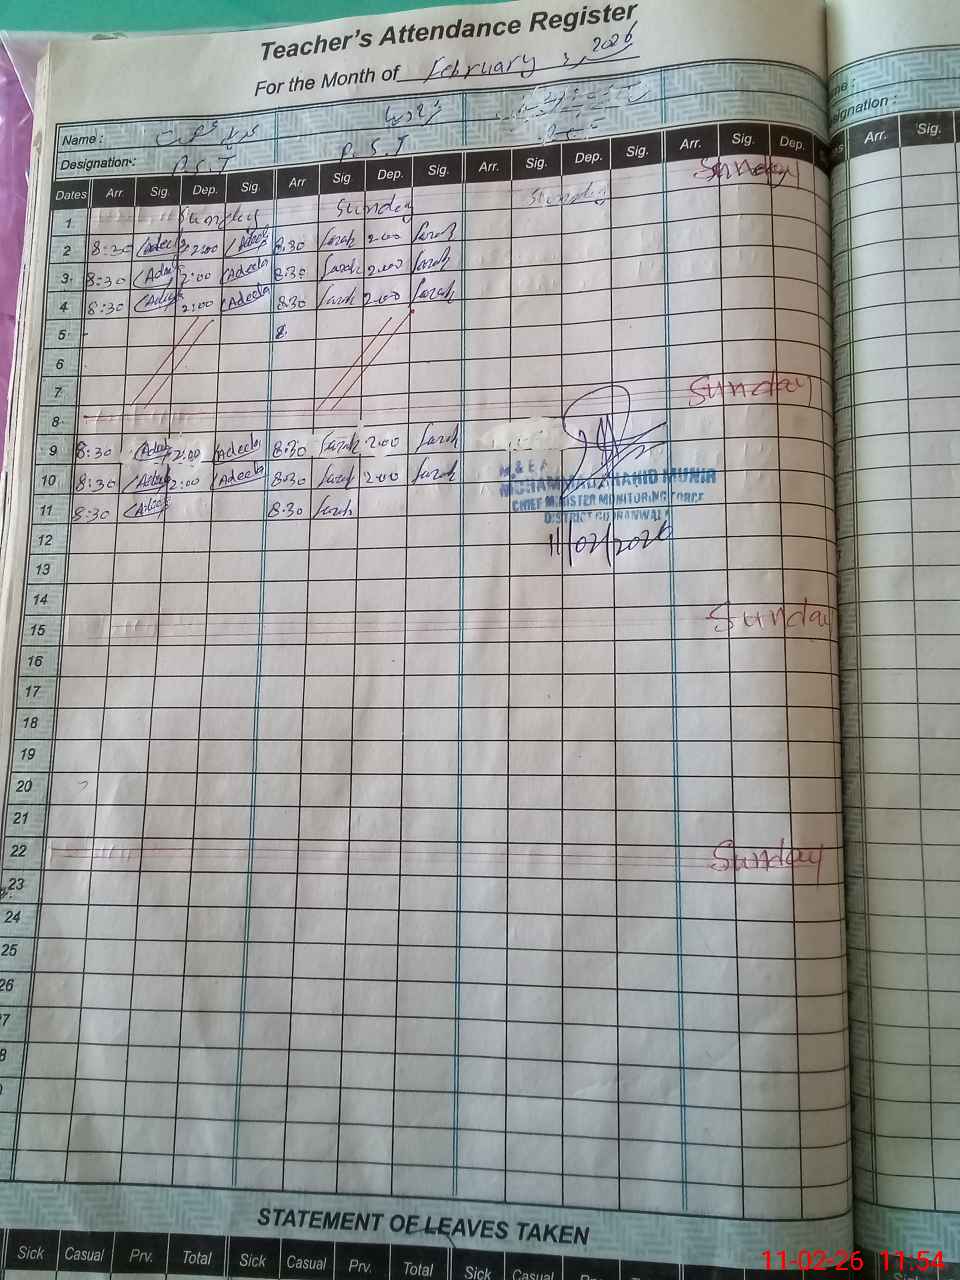 Teacher's Attendance Register
For the Month of February 2026
Name :
Designation : P.S.T P.S.T
Dates Arr. Sig. Dep. Sig. Arr Sig. Dep. Sig. Arr. Sig. Dep. Sig. Arr. Sig. Dep.
Arr. Sig.
1 Sunday Sunday Sunday Sunday
2 8:30 Adeela 2:00 Adeela 8:30 Sarah 2:00 Sarah
3 8:30 Adeela 2:00 Adeela 8:30 Sarah 2:00 Sarah
4 8:30 Adeela 2:00 Adeela 8:30 Sarah 2:00 Sarah
5 8
6
7
8 Sunday
9 8:30 Adeela 2:00 Adeela 8:30 Sarah 2:00 Sarah
10 8:30 Adeela 2:00 Adeela 8:30 Sarah 2:00 Sarah
11 8:30 Adeela 8:30 Sarah
M & E A
MUHAMMAD SHAHID MUNIR
CHIEF MINISTER MONITORING FORCE
DISTRICT GUJRANWALA
11/02/2026
12
13
14
15 Sunday
16
17
18
19
20
21
22 Sunday
23
24
25
26
7
8
STATEMENT OF LEAVES TAKEN
Sick Casual Prv. Total Sick Casual Prv. Total Sick Casual Prv. Total
11-02-26 11:54